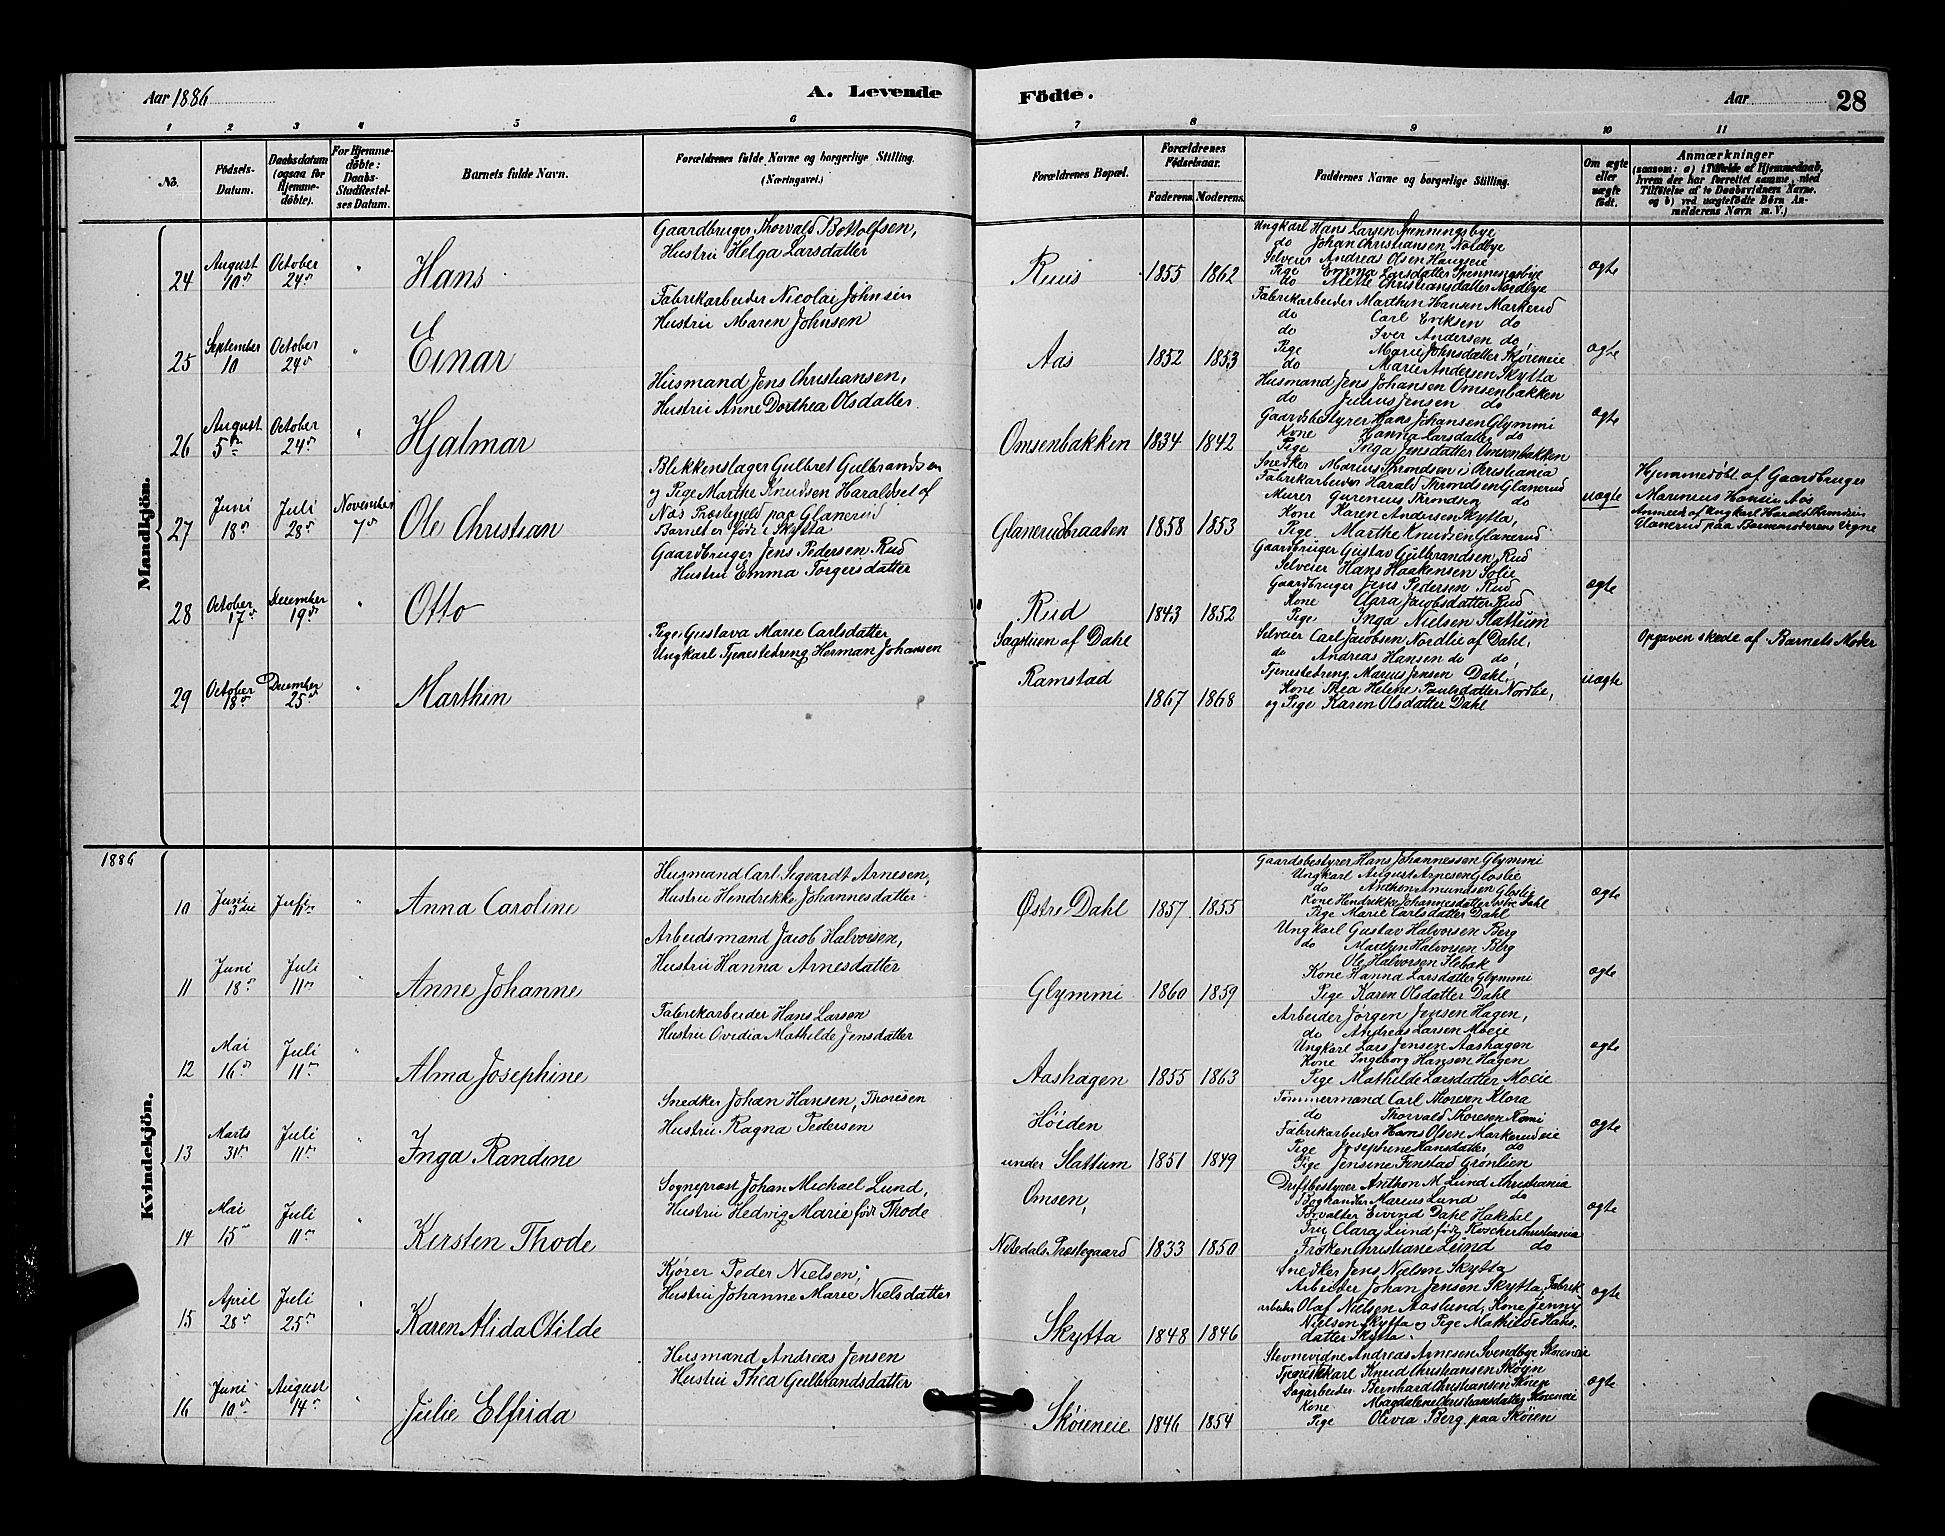 Aar 1886
A. Levende
Födte.
Aar
28
1
2
3
4
5
6
7
8
9
10
11
No.
Födsels-
Datum.
Daabsdatum
(ogsaa for
Hjemme-
döbte).
For Hjemme-
döbte:
Daabs-
Stadfæstel-
ses Datum.
Barnets fulde Navn.
Forældrenes fulde Navne og borgerlige Stilling.
(Næringsvei.)
Forældrenes Bopæl.
Forældrenes
Födselsaar.
Faderens.
Moderens.
Faddernes Navne og borgerlige Stilling.
Om ægte
eller
uægte
födt.
Anmærkninger
(saasom: a) i Tilfælde af Hjemmedaab,
hvem der har forrettet samme, med
Tilföielse af to Daabsvidners Navne.
og b) ved uægtefödte Börn An-
melderens Navn m. V.)
Mandkjön.
24
August
10de
October
24de
"
Hans
Gaardbruger Thorvald Bottolfsen,
Hustru Helga Larsdatter
Ruus
1855
1862
Ungkarl Hans Larsen Spenningsbye
do Johan Christiansen Noldbye
Selveier Andreas Olsen Haugeie
Pige Emma Larsdatter Spenningsbye
do Mette Christiansdatter Nordbye
ægte
25
September
10
October
24de
"
Einar
Fabrikarbeider Nicolai Johnsen
Hustru Maren Johnsen
Aas
1852
1853
Fabrikarbeider Marthin Hansen Markerud
do Carl Eriksen do
do Iver Andersen do
Pige Marie Johnsdatter Skøieneie
do Marie Andersen Skytta
ægte
26
August
5te
October
24de
"
Hjalmar
Husmand Jens Christiansen,
Hustru Anne Dorthea Olsdatter
Omsenbakken
1834
1842
Husmand Jens Johansen Omsenbakken
do Julius Jensen do
Gaardsbestyrer Hans Johansen Glymmi
Kone Hanna Larsdatter do
Pige Inga Jensdatter Omsenbakken
ægte
27
Juni
18de
Juli
28de
November
7de
Ole Christian
Blikkenslager Gulbret Gulbrandsen
og Pige Marthe Knudsen Haraldset af
Næs Præstegjeld paa Glanerud
Barnet er født i Skytta
Glanerudbraaten
1858
1853
Snedker Marius Throndsen i Christiania
Fabrikarbeider Harald Throndsen Glanerud
Murer Gurenius Throndsen do
Kone Karen Andersen Skytta,
Pige Marthe Knudsen Glanerud
uægte
Hjemmedöbt af Gaardbruger
Marenius Hansen Aas
Anmeldt af Ungkarl Harald Thrundsen
Glanerud paa Barnemoderens Vegne
28
October
17de
December
19de
"
Otto
Gaardbruger Jens Pedersen Rud
Hustru Emma Torgersdatter
Rud
1843
1852
Gaardbruger Gustav Gulbrandsen Rud
Selveier Hans Haakensen Solie
Gaardbruger Jens Pedersen Rud
Kone Clara Jacobsdatter Rud
Pige Inga Nielsen Slattum
ægte
29
October
18de
December
25de
"
Marthin
Pige Gustava Marie Carlsdatter
Ungkarl Tjenestedreng Herman Johansen
Sagstuen af Dahl
Ramstad
1867
1868
Selveier Carl Jacobsen Nordlie af Dahl,
do Andreas Hansen do do,
Tjenestedreng Marius Jensen Dahl,
Kone Thea Helene Paulsdatter Nordlie,
og Pige Karen Olsdatter Dahl
uægte
Opgaven skede af Barnets Moder
1886
Kvindekjön.
10
Juni
3die
Juli
11te
Anna Caroline
Husmand Carl Sigvardt Arnesen,
Hustru Hendrikke Johannesdatter
Østre Dahl
1857
1855
Gaardsbestyrer Hans Johannessen Glymmi
Ungkarl August Arnesen Gloslie
do Anthen Amundsen Gloslie
Kone Hendrikke Johannesdatter østre Dahl
Pige Marie Carlsdatter Dahl
ægte
11
Juni
18de
Juli
11te
"
Anne Johanne
Arbeidsmand Jacob Halvorsen,
Hustru Hanna Arnesdatter
Glymmi
1860
1859
Ungkarl Gustav Halvorsen Berg
do Marthin Halvorsen Berg
Ole Halvorsen Flebæk
Kone Hanna Larsdatter Glymmi
Pige Karen Olsdatter Dahl
ægte
12
Mai
16de
Juli
11te
"
Alma Josephine
Fabrikarbeider Hans Larsen
Hustru Ovidia Mathilde Jensdatter
Aashagen
1855
1863
Arbeider Jørgen Jensen Hagen,
do Andreas Larsen Moeie
Ungkarl Lars Jensen Aashagen
Kone Ingeborg Hansen Hagen
Pige Mathilde Larsdatter Moeie
ægte
13
Marts
31te
Juli
11te
"
Inga Randine
Snedker Johan Hansen, Thoresen
Hustru Ragna Pedersen
Høiden
under Slattum
1851
1849
Tømmermand Carl Thoresen Klora
do Thorvald Thoresen Romi
Fabrikarbeider Hans Olsen Markerudeie
Pige Josephine Hansdatter do
Pige Jensine Finstad Grønlien
ægte
14
Mai
15de
Juli
11te
"
Kirsten Thode
Sogneprest Johan Michael Lund,
Hustru Hedvig Marie født Thode
Omsen,
Nitedals Præstegaard
1833
1850
Driftbestyrer Anthon M Lund Christiania
Boghandler Marius Lund do
Forvalter Eivind Dahl Hakedal
Fru Clara Lund født Roscher Christiania
Frøken Christiane Lund do
ægte
15
April
28de
Juli
25de
"
Karen Alida Otilde
Kjører Peder Nielsen,
Hustru Johanne Marie Nielsdatter
Skytta
1848
1846
Snedker Jens Nielsen Skytta
Arbeider Johan Jensen Skytta, Fabrik-
arbeider Olaf Nielsen Aaslund, Kone Jenny
Nielsen Skytta og Pige Mathilde Hans-
datter Skytta.
ægte
16
Juni
10de
August
14de
"
Julie Elfrida
Husmand Andreas Jensen
Hustru Thea Gulbrandsdatter
Skøieneie
1846
1854
Stevnevidne Andreas Arnesen Svendbye Skøieneie
Tjenestekarl Knud Christiansen Skøien
Sagarbeider Bernhard Christiansen Skøien
Kone Magdalene Christiansdatter Skøieneie
Pige Olivia Berg paa Skøien
ægte